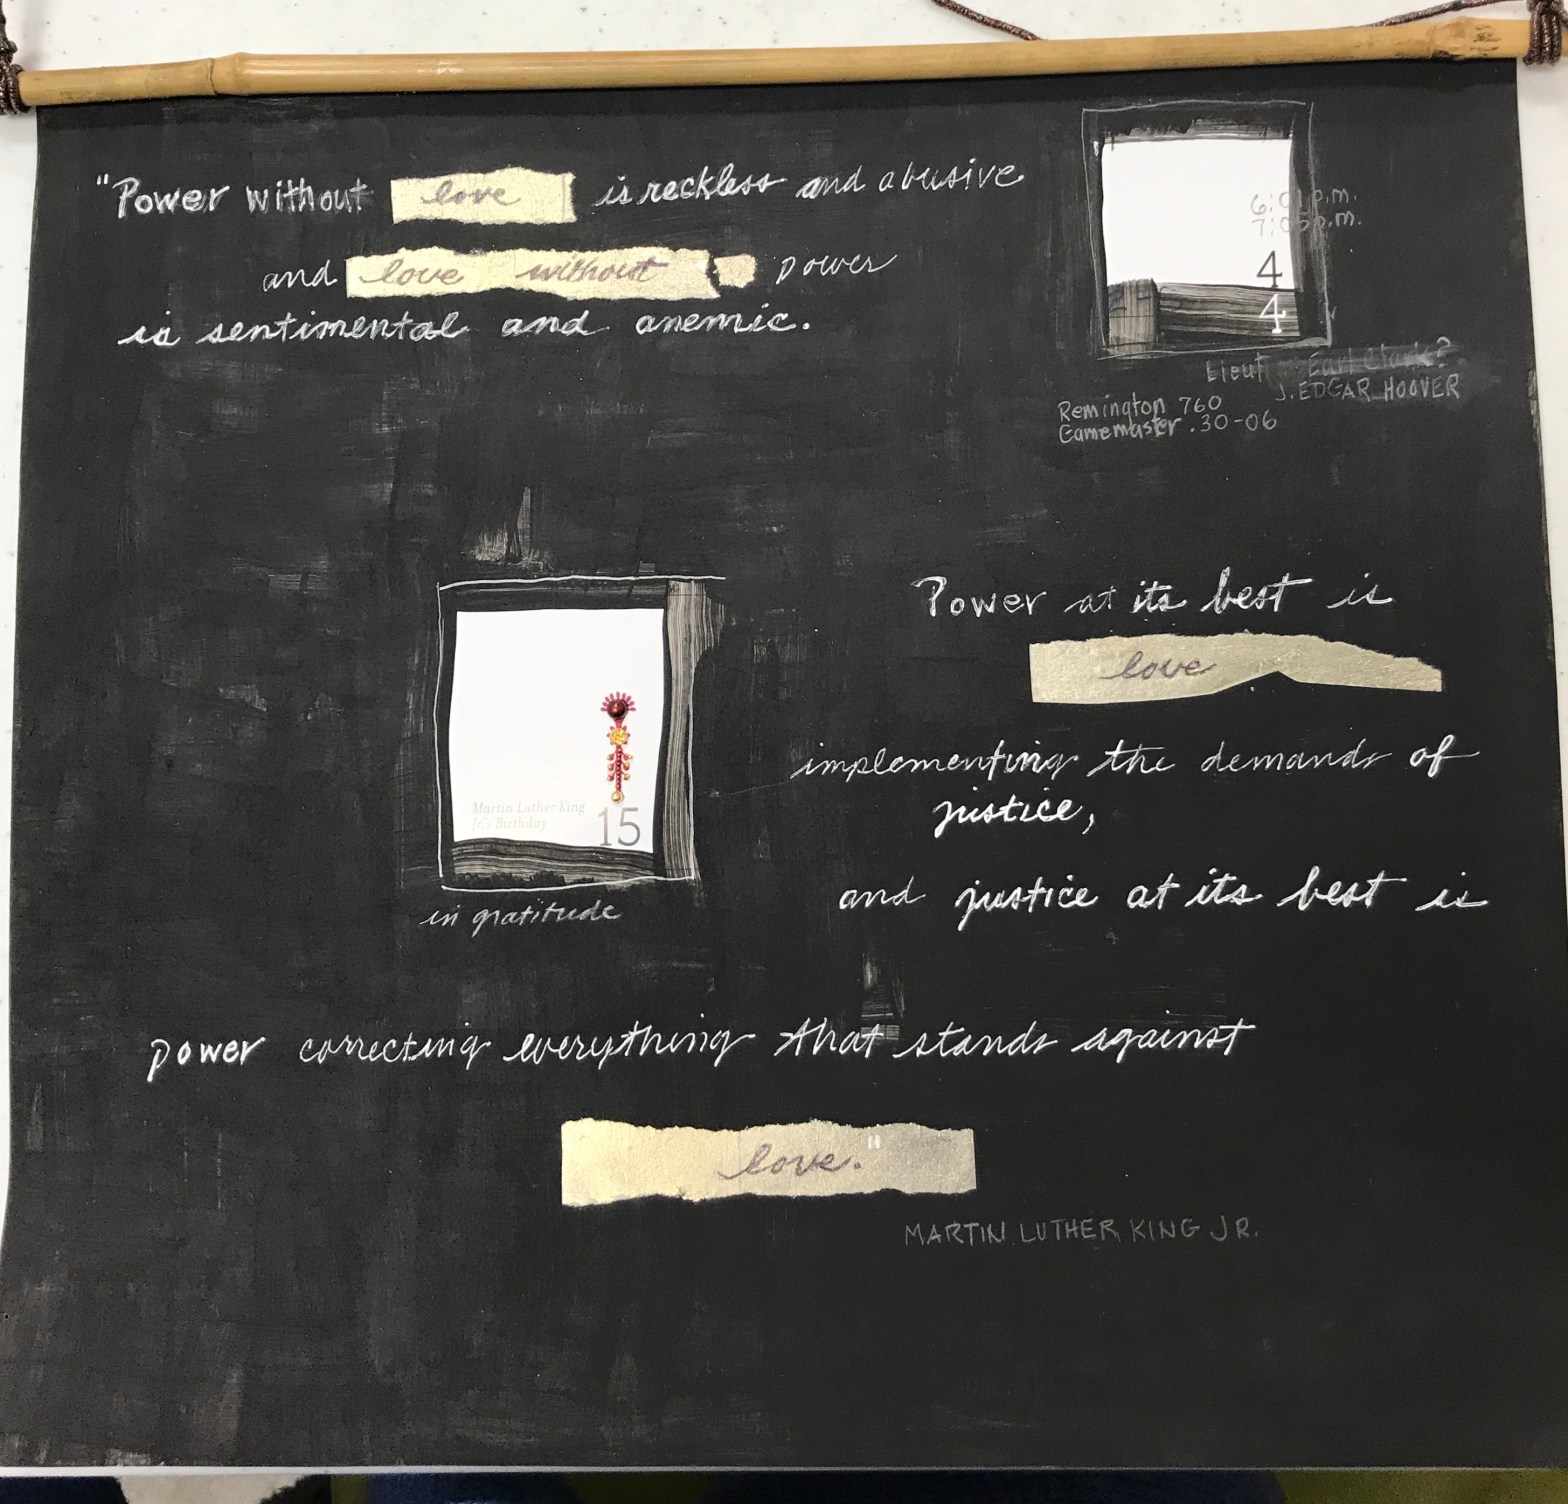 "Power without love is reckless and abusive
and love without power
is sentimental and anemic.
6:01 p.m.
7:05 p.m.
4
4
Lieut Earl Clark?
J. EDGAR HOOVER
Remington 760
Gamemaster .30-06
Power at its best is
love
implementing the demands of
justice,
and justice at its best is
Martin Luther King
Jr.'s Birthday
15
in gratitude
power correcting everything that stands against
love."
MARTIN LUTHER KING JR.